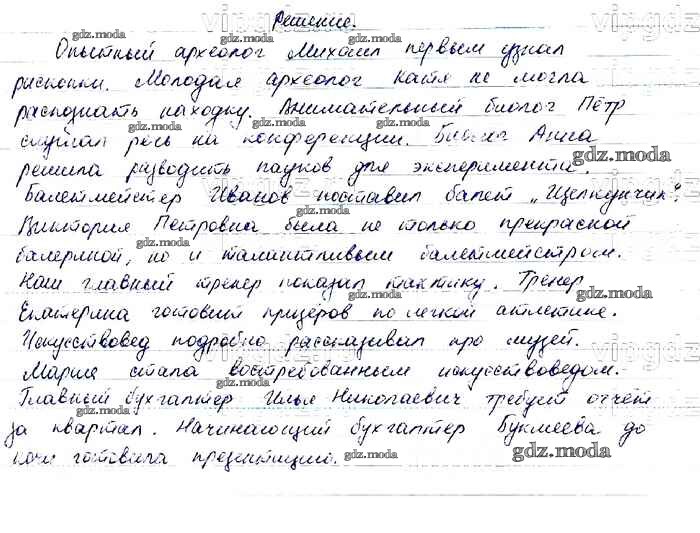 Решение.
Опытный археолог Михаил первым узнал
рисконки. Молодая археолог Катя не могла
распознать находку. Внимательный биолог Пётр
слушал речь на конференции. Биолог Анна
решила разводить пауков для эксперимента.
Балетмейстер Иванов поставил балет „Щелкунчик“.
Виктория Петровна была не только прекрасной
балериной, но и талантливым балетмейстром.
Наш главный тренер показал тактику. Тренер
Екатерина готовит призёров по легкой атлетике.
Искусствовед подробно рассказывал про музей.
Мария стала востребованным искусствоведом.
Главный бухгалтер Илья Николаевич требует отчёт
за квартал. Начинающий бухгалтер Букмеева до
ночи готовила презентацию.
gdz.moda
vipgdz